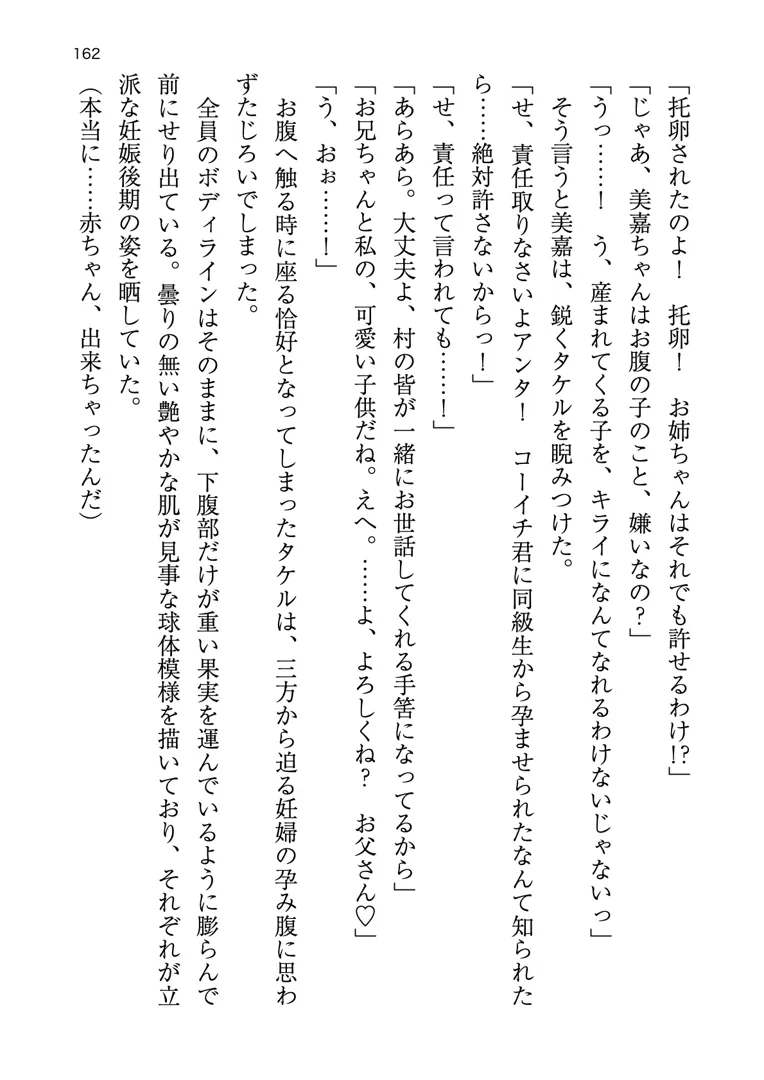 162
「托卵されたのよ！　托卵！　お姉ちゃんはそれでも許せるわけ!?」
「じゃあ、美嘉ちゃんはお腹の子のこと、嫌いなの？」
「うっ……！　う、産まれてくる子を、キライになんてなれるわけないじゃないっ」
そう言うと美嘉は、鋭くタケルを睨みつけた。
「せ、責任取りなさいよアンタ！　コーイチ君に同級生から孕ませられたなんて知られた
ら……絶対許さないからっ！」
「せ、責任って言われても……！」
「あらあら。大丈夫よ、村の皆が一緒にお世話してくれる手筈になってるから」
「お兄ちゃんと私の、可愛い子供だね。えへ。……よ、よろしくね？　お父さん♡」
「う、おぉ……！」
お腹へ触る時に座る恰好となってしまったタケルは、三方から迫る妊婦の孕み腹に思わ
ずたじろいでしまった。
全員のボディラインはそのままに、下腹部だけが重い果実を運んでいるように膨らんで
前にせり出ている。曇りの無い艶やかな肌が見事な球体模様を描いており、それぞれが立
派な妊娠後期の姿を晒していた。
（本当に……赤ちゃん、出来ちゃったんだ）